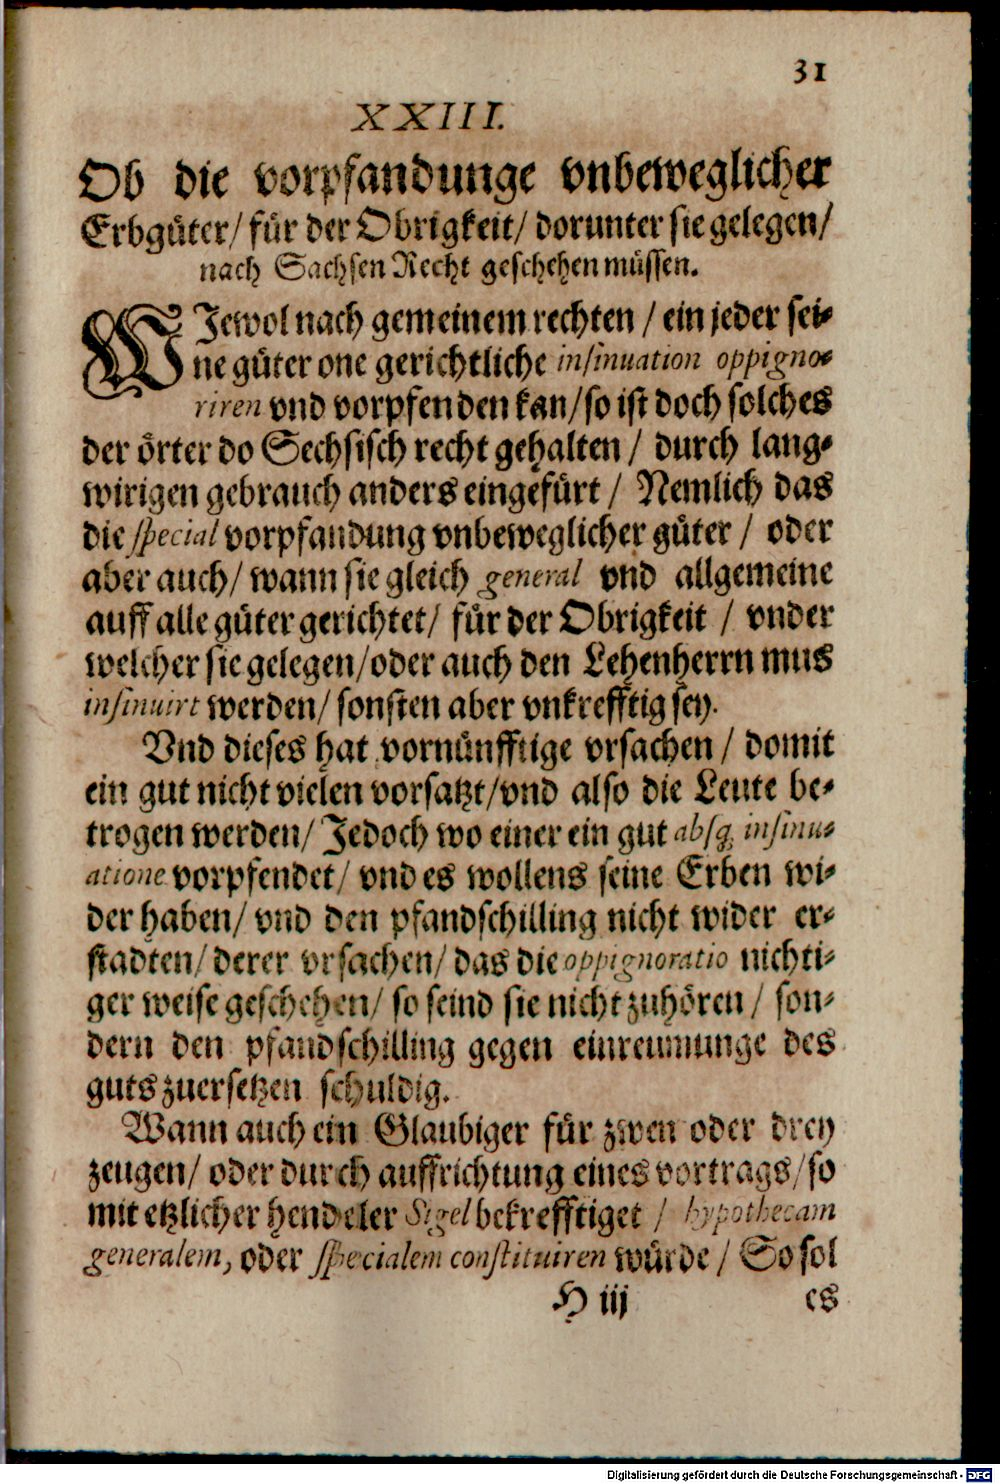 31
XXIII.
Ob die vorpfandunge vnbeweglicher
Erbgüter/ für der Obrigkeit/ dorunter sie gelegen/
nach Sachsen Recht geschehen müssen.
WJewol nach gemeinem rechten / ein jeder sei-
ne güter one gerichtliche insinuation oppigno-
riren vnd vorpfenden kan/ so ist doch solches
der örter do Sechsisch recht gehalten / durch lang-
wirigen gebrauch anders eingefürt / Nemlich das
die special vorpfandung vnbeweglicher güter / oder
aber auch/ wann sie gleich general vnd allgemeine
auff alle güter gerichtet/ für der Obrigkeit / vnder
welcher sie gelegen/ oder auch den Lehenherrn mus
insinuirt werden/ sonsten aber vnkrefftig sey.
Vnd dieses hat vornünfftige vrsachen / domit
ein gut nicht vielen vorsatzt/ vnd also die Leute be-
trogen werden/ Jedoch wo einer ein gut absq; insinu-
atione vorpfendet/ vnd es wollens seine Erben wi-
der haben/ vnd den pfandschilling nicht wider er-
stadten/ derer vrsachen/ das die oppignoratio nichti-
ger weise geschehen/ so seind sie nicht zuhören / son-
dern den pfandschilling gegen einreumunge des
guts zuersetzen schuldig.
Wann auch ein Glaubiger für zwen oder drey
zeugen/ oder durch auffrichtung eines vortrags/ so
mit etzlicher hendeler Sigel bekrefftiget / hypothecam
generalem, oder specialem constituiren würde / So sol
H iij es
Digitalisierung gefördert durch die Deutsche Forschungsgemeinschaft - DFG